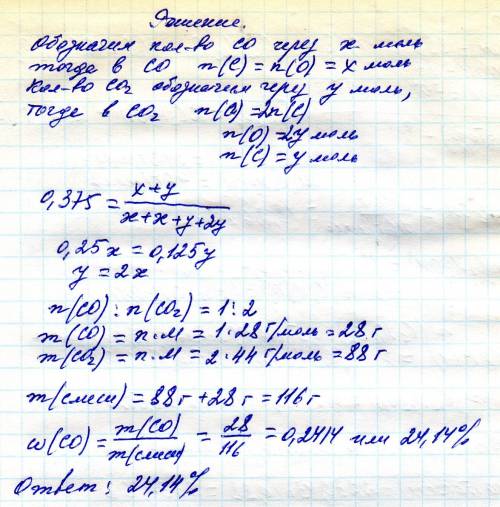 Решение.
Обозначим кол-во CO через x моль
тогда в CO n(C) = n(O) = x моль
Кол-во CO₂ обозначим через y моль,
Тогда в CO₂ n(O) = 2n(C)
n(O) = 2y моль
n(C) = y моль
0,375 = \frac{x+y}{x+x+y+2y}
0,25x = 0,125y
y = 2x
n(CO) : n(CO₂) = 1 : 2
m(CO) = n·M = 1·28 г/моль = 28 г
m(CO₂) = n·M = 2·44 г/моль = 88 г
m(смеси) = 88 г + 28 г = 116 г
ω(CO) = \frac{m(CO)}{m(смеси)} = \frac{28}{116} = 0,2414 или 24,14%
Ответ: 24,14%